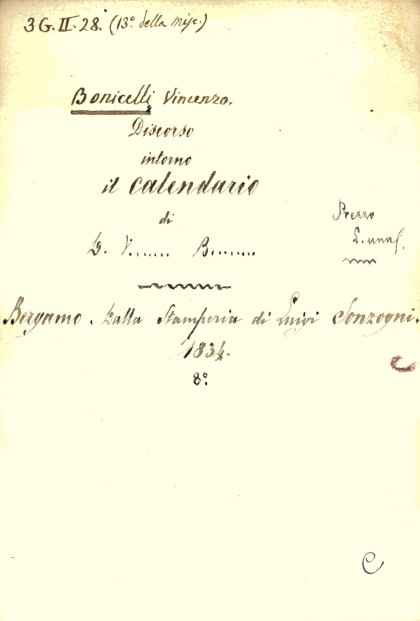 3 G. II. 28. (13º della misc.)
Bonicelli Vincenzo.
Discorso
intorno
il calendario
di
Prezzo
D. V...... B......
L. una f.
Bergamo. Dalla Stamperia di Luigi Sonzogni.
1834.
8º
C
C